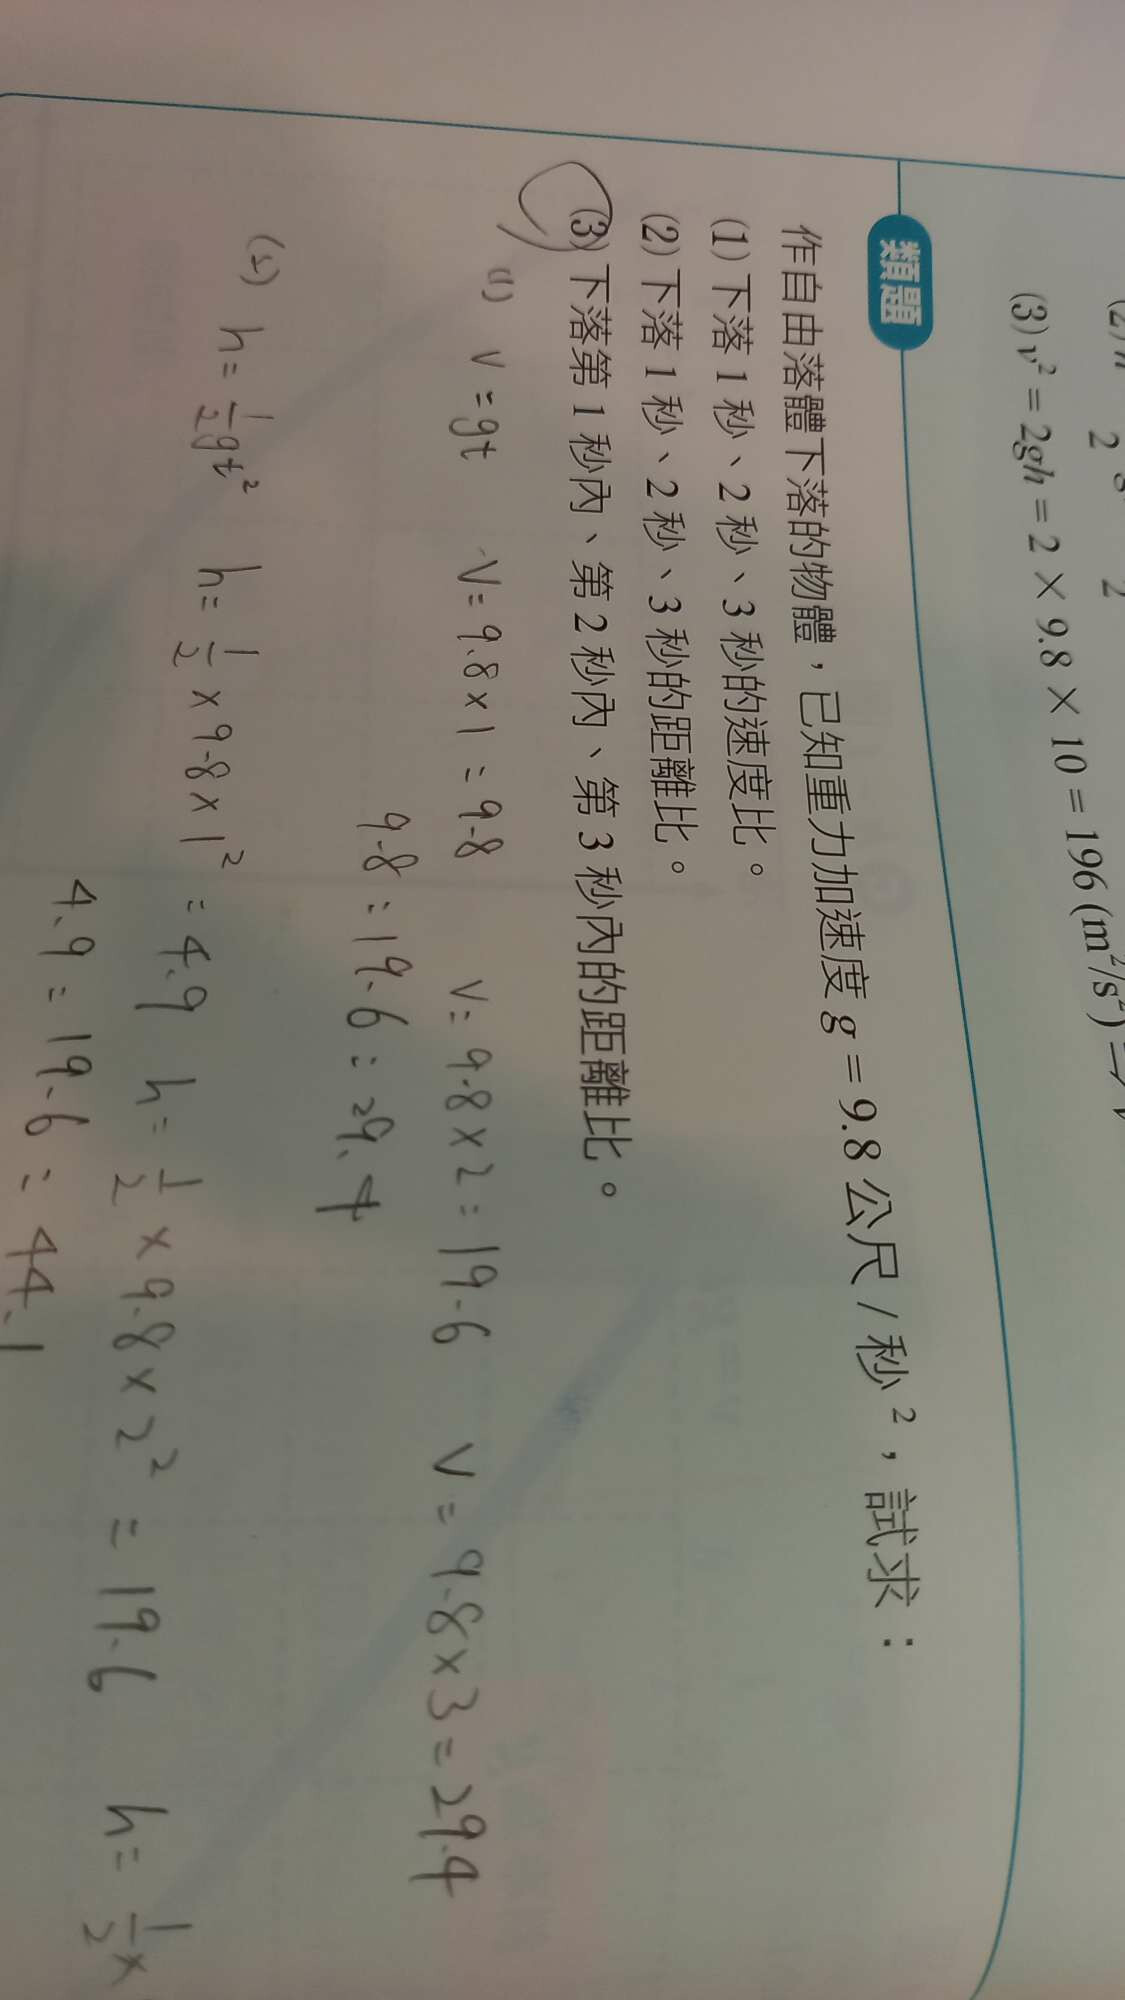 (3) v² = 2gh = 2 × 9.8 × 10 = 196 (m²/s²)
類題
作自由落體下落的物體，已知重力加速度 g = 9.8 公尺 / 秒²，試求：
(1) 下落 1 秒、2 秒、3 秒的速度比。
(2) 下落 1 秒、2 秒、3 秒的距離比。
(3) 下落第 1 秒內、第 2 秒內、第 3 秒內的距離比。
(1) v = gt V = 9.8 × 1 = 9.8 V = 9.8 × 2 = 19.6 V = 9.8 × 3 = 29.4
9.8 : 19.6 : 29.4
(2) h = 1/2 gt² h = 1/2 × 9.8 × 1² = 4.9 h = 1/2 × 9.8 × 2² = 19.6 h = 1/2 ×
4.9 = 19.6 : 44.1